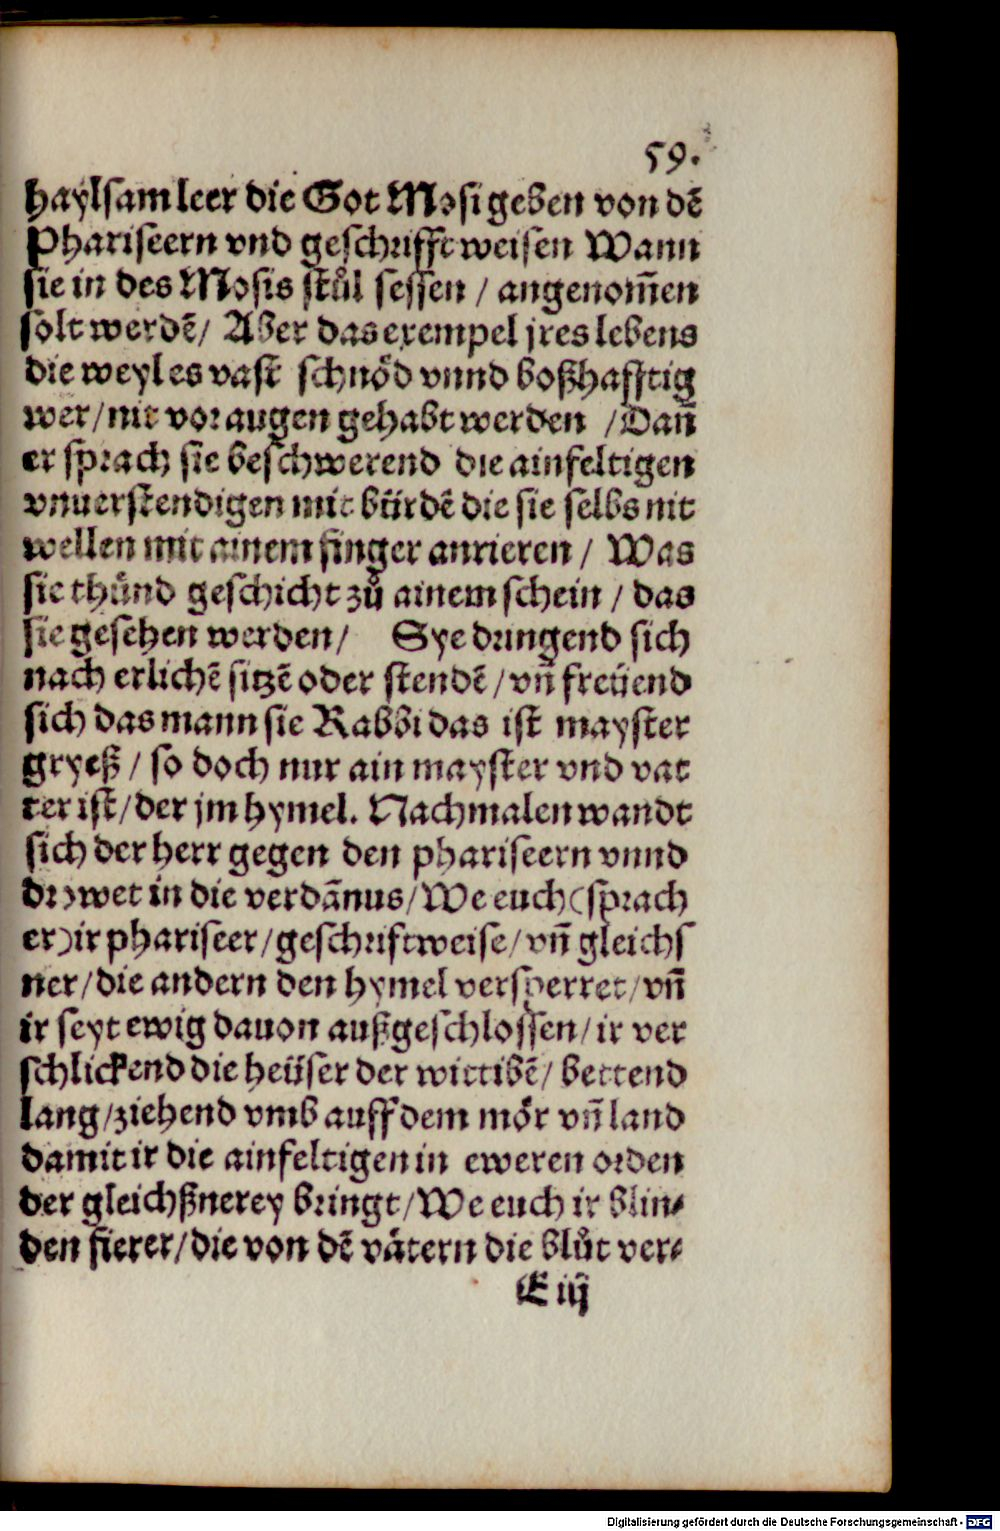 59.
haylsam leer die Got Mosi geben von dẽ
Phariseern vnd geschrifft weisen Wann
sie in des Mosis stůl sessen / angenom̃en
solt werdẽ / Aber das exempel jres lebens
die weyl es vast schnöd vnnd boßhafftig
wer / nit vor augen gehabt werden / Dañ
er sprach sie beschwerend die ainfeltigen
vnuerstendigen mit bürdẽ die sie selbs nit
wellen mit ainem finger anrieren / Was
sie thůnd geschicht zů ainem schein / das
sie gesehen werden / Sye dringend sich
nach erlichẽ sitzẽ oder stendẽ / vñ freüend
sich das mann sie Rabbi das ist mayster
gryeß / so doch nur ain mayster vnd vat
ter ist / der jm hymel. Nachmalen wandt
sich der herr gegen den phariseern vnnd
drowet in die verdãnus / We euch (sprach
er) ir phariseer / geschriftweise / vñ gleichs
ner / die andern den hymel versperret / vñ
ir seyt ewig dauon außgeschlossen / ir ver
schlickend die heüser der wittibẽ / bettend
lang / ziehend vmb auff dem mör vñ land
damit ir die ainfeltigen in eweren orden
der gleichßnerey bringt / We euch ir blin⸗
den fierer / die von dẽ vätern die blůt ver⸗
E iij
Digitalisierung gefördert durch die Deutsche Forschungsgemeinschaft - DFG